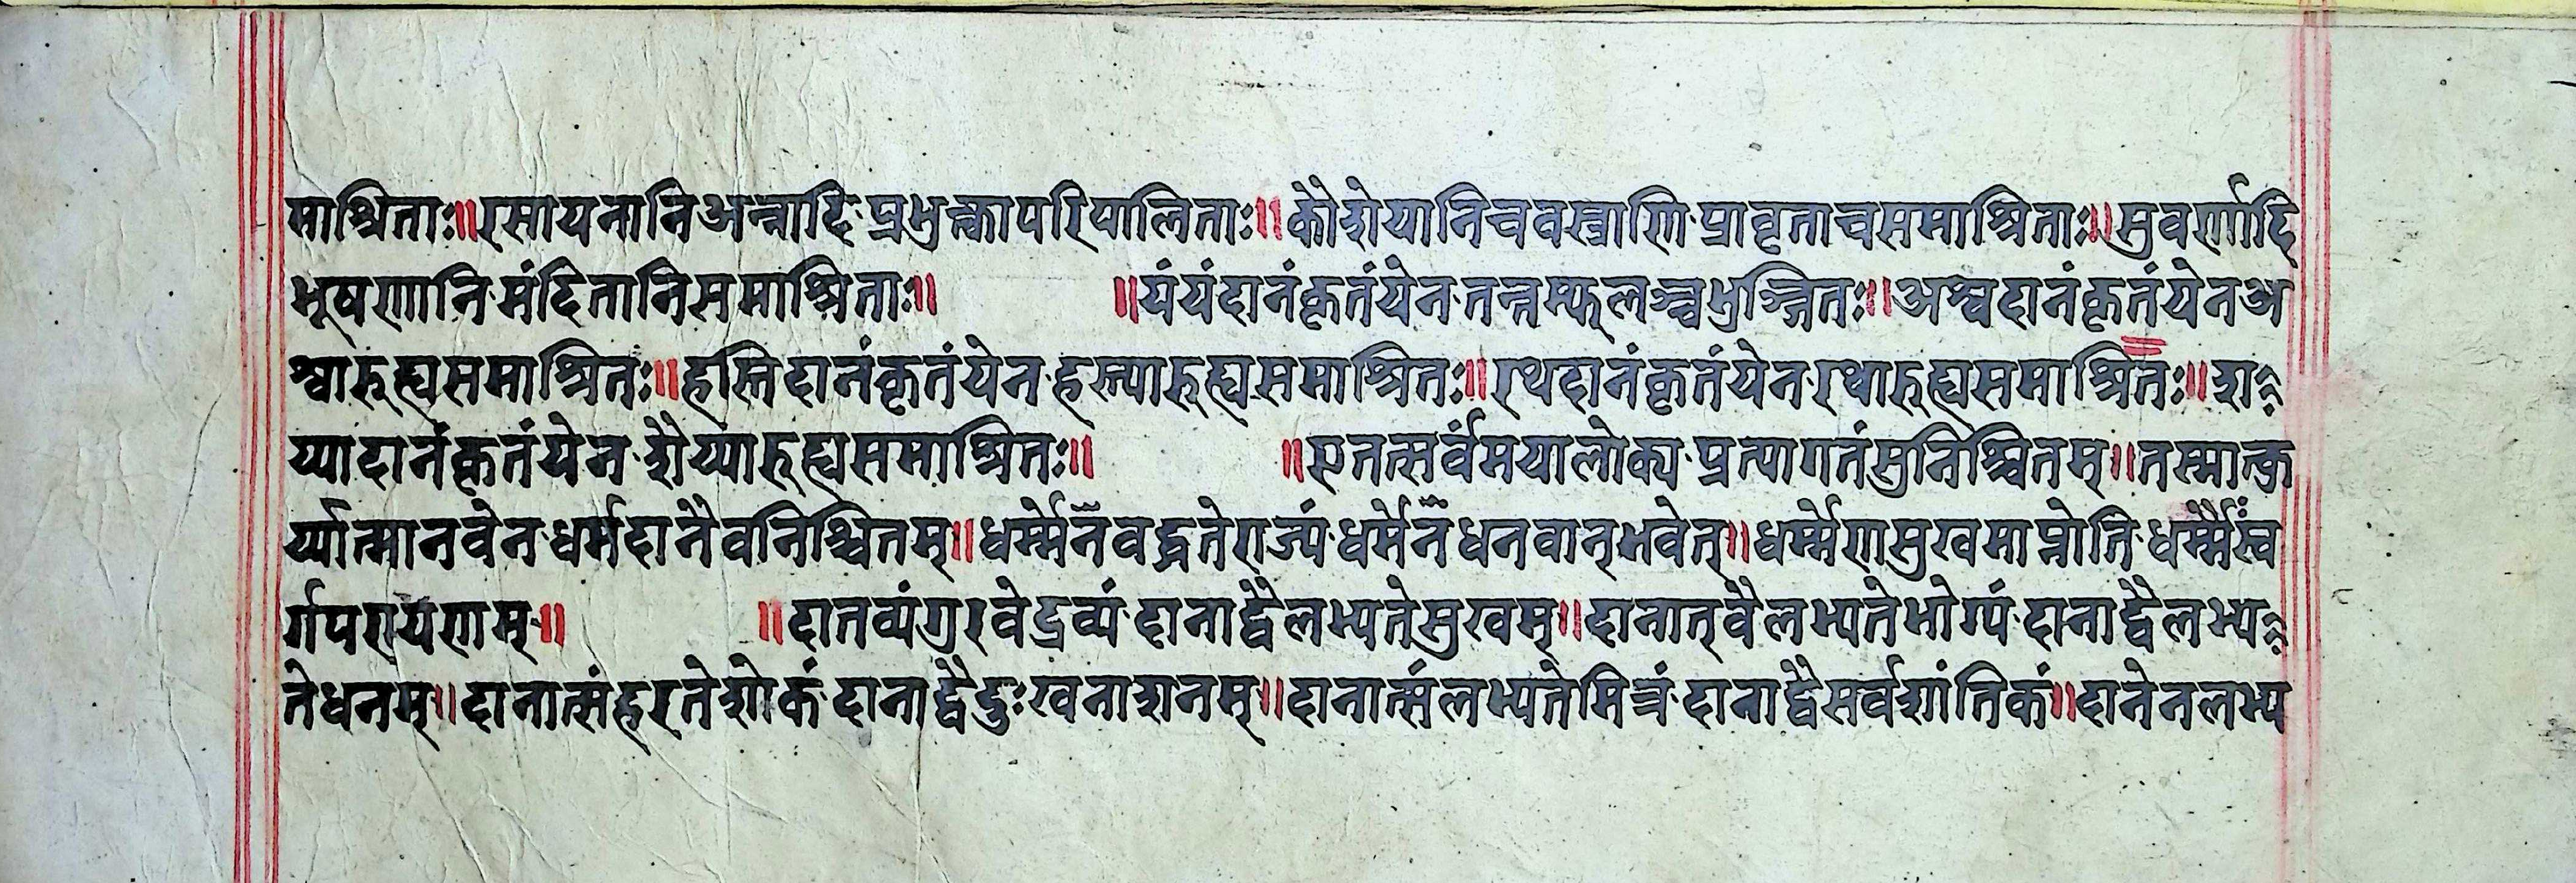 माश्रिताः॥रसायनानिअन्नादि·प्रभुक्त्वापरिपालिताः॥कौशेयानिचवस्त्राणि·प्रावृताचसमाश्रिताः॥सुवर्णादि
भूषणानि·मंदितानिसमाश्रिताः॥ ॥यंयंदानंकृतंयेन·तन्तम्फलञ्चभुञ्जितः॥अश्वदानंकृतंयेनअ
श्वारुह्यसमाश्रितः॥हस्तिदानंकृतंयेन·हस्त्यारुह्यसमाश्रितः॥रथदानंकृतंयेन·रथारुह्यसमाश्रितः॥श
य्यादानंकृतंयेन·शैय्यारुह्यसमाश्रितः॥ ॥एतत्सर्वंमयालोक्य·प्रत्यागतंसुनिश्चितम्॥तस्मात्कु
र्य्यात्मानवेन·धर्मदानैवनिश्चितम्॥धर्म्मेनवद्धतेराज्यं·धर्मेनधनवान्भवेत्॥धर्म्मेणसुखमाप्नोति·धर्म्मैस्व
र्गपरायणम्॥ ॥दातव्यंगुरवेद्रव्यं·दानाद्वैलभ्यतेसुखम्॥दानात्वैलभ्यतेभोग्यं·दानाद्वैलभ्य
तेधनम्॥दानात्संहरतेशोकं·दानाद्वैदुःखनाशनम्॥दानार्त्सलभ्यतेमित्रं·दानाद्वैसर्वशांतिकं॥दानेनलभ्य